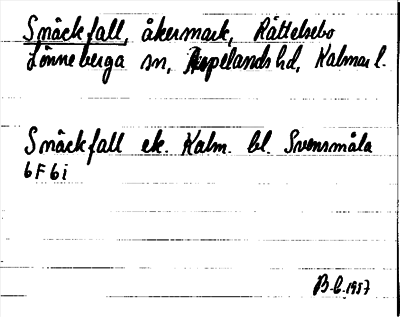 Snäckfall, åkermark, Rättelsebo
Lönneberga sn, Aspelands hd, Kalmar l.
Snäckfall ek. Kalm. bl. Svensmåla
6F6i
B-C. 1957